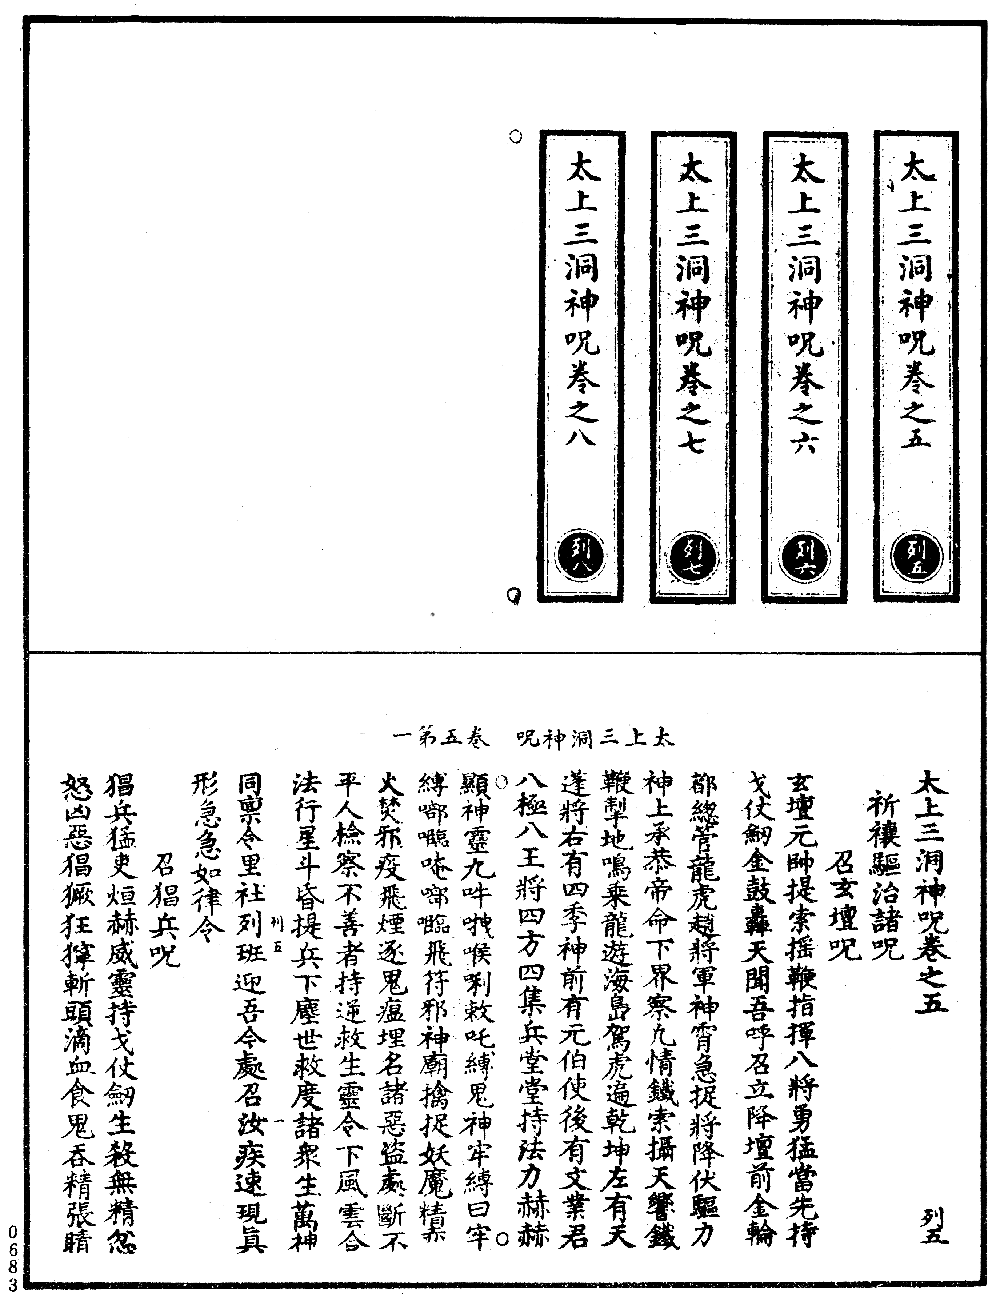 太上三洞神呪卷之五
列五
太上三洞神呪卷之六
列六
太上三洞神呪卷之七
列七
太上三洞神呪卷之八
列八
太上三洞神呪　卷五第一
太上三洞神呪卷之五　列五
祈禳驅治諸呪
召玄壇呪
玄壇元帥提索搖鞭指揮八將勇猛當先持
戈仗劒金鼓轟天聞吾呼召立降壇前金輪
都總管龍虎趙將軍神霄急捉將降伏驅力
神上承恭帝命下界察凡情鐵索攝天響鐵
鞭犁地鳴乘龍遊海島駕虎遍乾坤左有天
蓬將右有四季神前有元伯使後有文業君
八極八王將四方四集兵堂堂持法力赫赫
顯神靈九吽㗭喉唎敕吒縛鬼神牢縛曰牢
縛啷𡄸唵啷𡄸飛符邪神廟擒捉妖魔精
火焚邪疫飛煙逐鬼瘟埋名諸惡盜處斷不
平人檢察不善者持逆救生靈令下風雲合
法行星斗昏提兵下塵世救度諸衆生萬神
列五　一
同稟令里社列班迎吾令處召汝疾速現眞
形急急如律令
召猖兵呪
猖兵猛吏烜赫威靈持戈仗劒生殺無精忿
怒凶惡猖獗狂獰斬頭滴血食鬼吞精張睛
0683